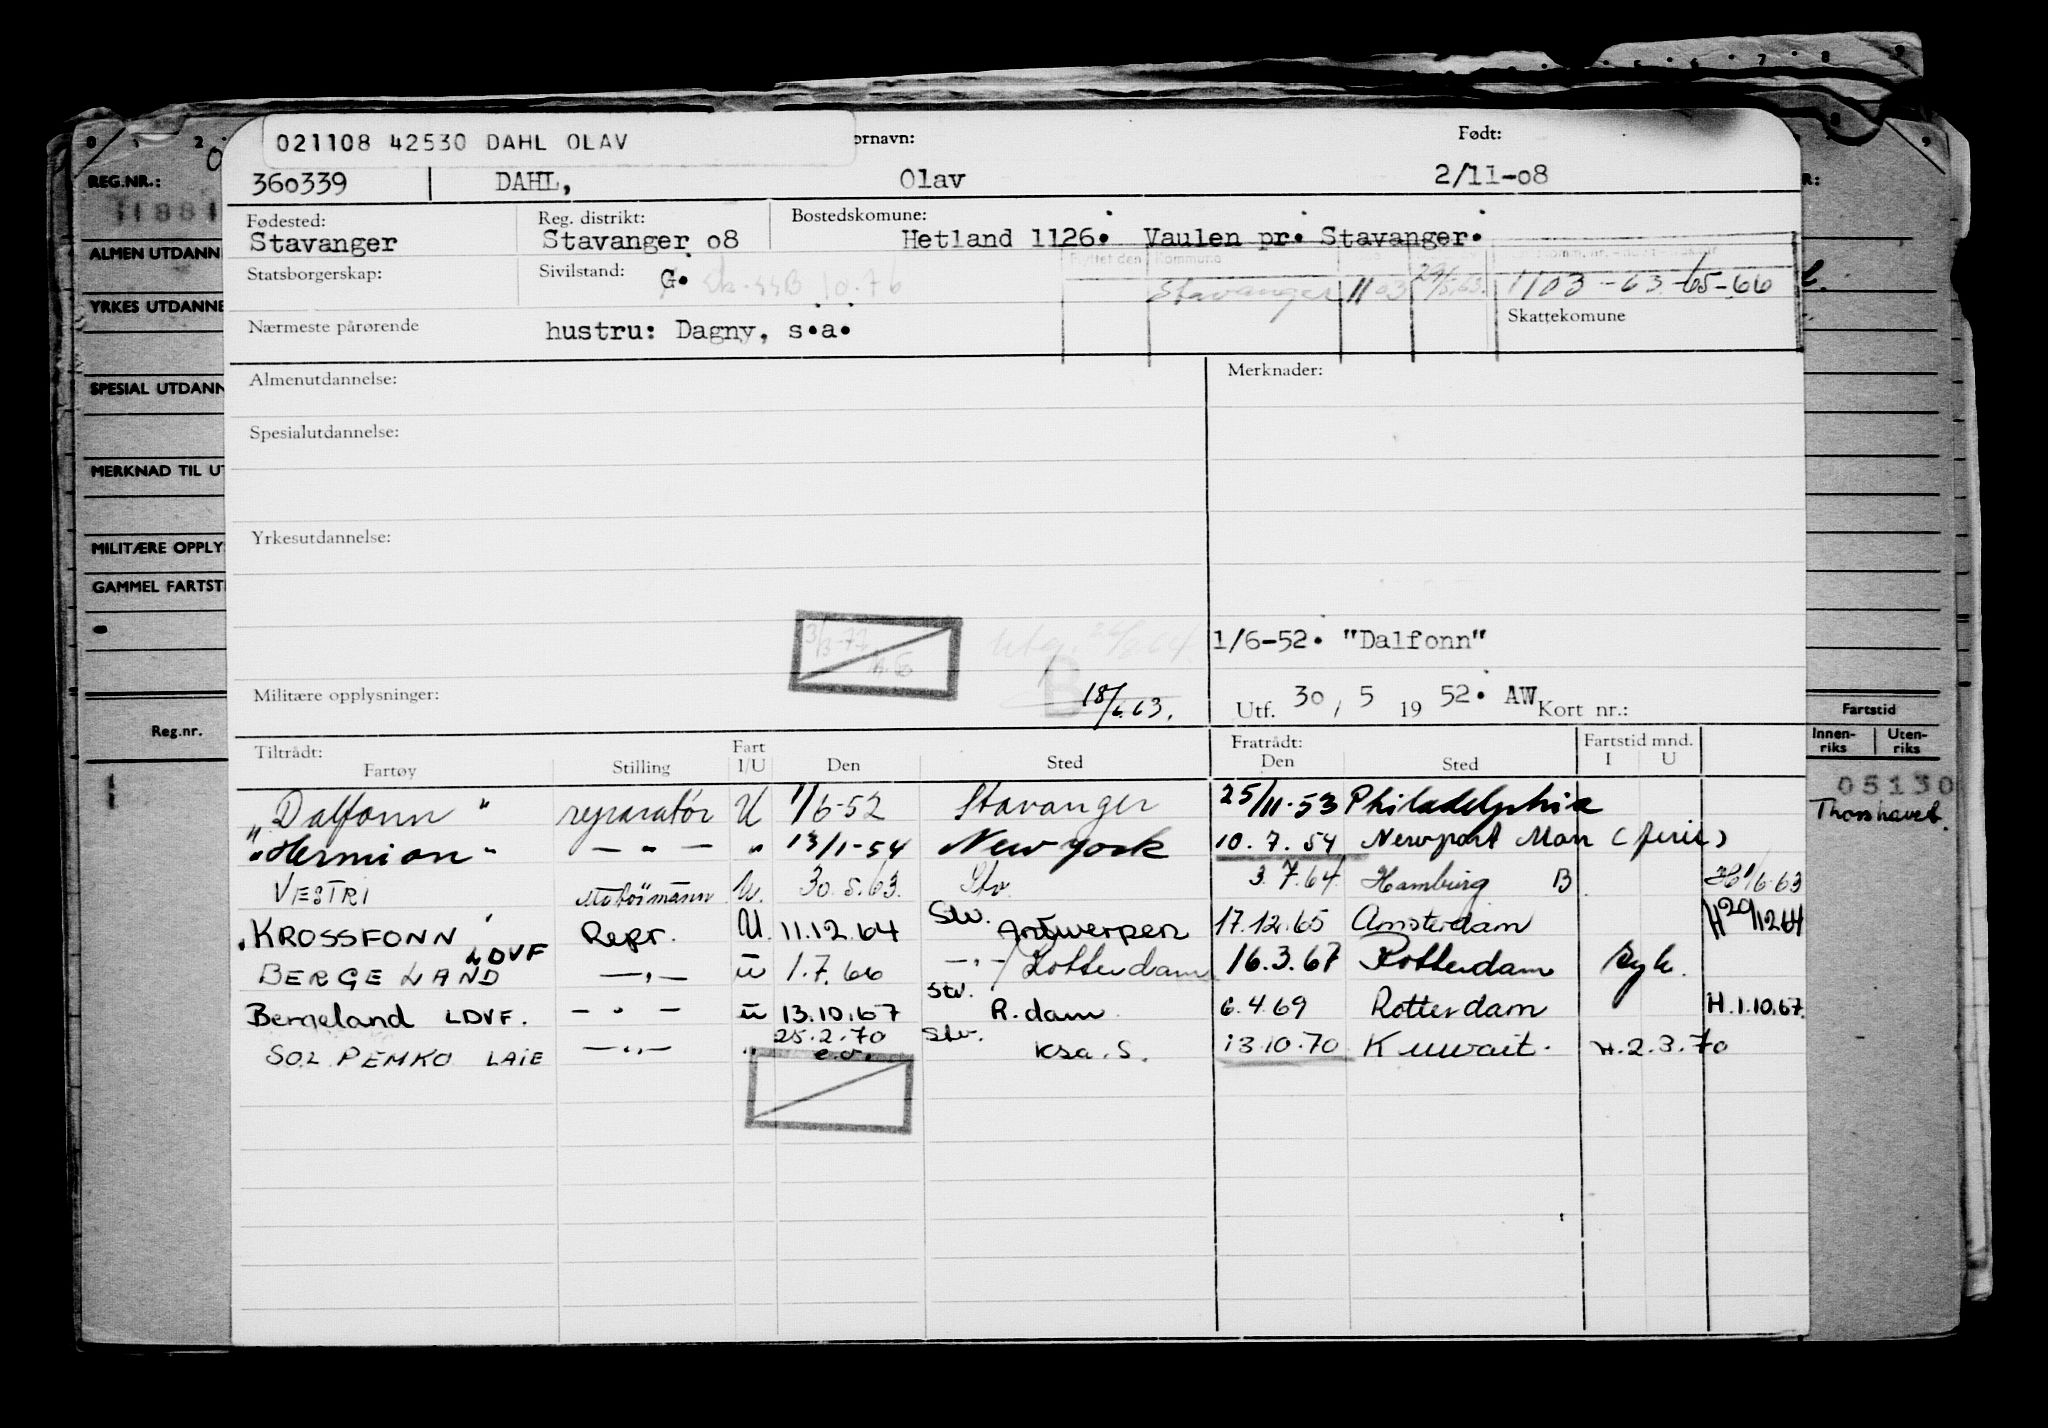 021108 42530 DAHL OLAV
ornavn: Født:
360339 DAHL, Olav 2/11-08
Fødested: Reg. distrikt: Bostedskomune:
Stavanger Stavanger 08 Hetland 1126. Vaulen pr. Stavanger.
Statsborgerskap: Sivilstand: G. Flyttet den Kommune
Stavanger 1103 29/5.63. 1103-63-65-66
Nærmeste pårørende hustru: Dagny, s.a. Skattekomune
Almenutdannelse: Merknader:
Spesialutdannelse:
Yrkesutdannelse:
1/6-52. "Dalfonn"
Militære opplysninger: B 18/6.63. Utf. 30 / 5 19 52. AW Kort nr.:
Tiltrådt: Fart Fratrådt: Fartstid mnd.
Fartøy Stilling I/U Den Sted Den Sted I U
"Dalfonn" reparatør U 1/6-52 Stavanger 25/11-53 Philadelphia
"Hermion" — " — " 13/1-54 New York 10.7.54 Newport Mon (ferie)
VESTRI Motormann U. 30.5.63. Stv. 3.7.64 Hamburg B 1/6.63
KROSSFONN Repr. U. 11.12.64 Stv. Antwerpen 17.12.65 Amsterdam H20/1264
BERGELAND LDVF — " — U 1.7.66 — " —/Rotterdam 16.3.67 Rotterdam syk.
Bergeland LDVF. — " — U 13.10.67 Stv. R.dam 6.4.69 Rotterdam H.1.10.67.
SOL PEMKO LAIE — " — " 25.2.70 e.o. Stv. Ksa. S. 13.10.70 Kuwait. H.2.3.70
0 1 2
REG.NR.:
11881
ALMEN UTDANN
YRKES UTDANNE
SPESIAL UTDANN
MERKNAD TIL UT
MILITÆRE OPPLYS
GAMMEL FARTSTI
Reg.nr.
5 6 7 8 9
8 9
R:
Fartstid
Innen-riks Uten-riks
05130
Thorshavet.